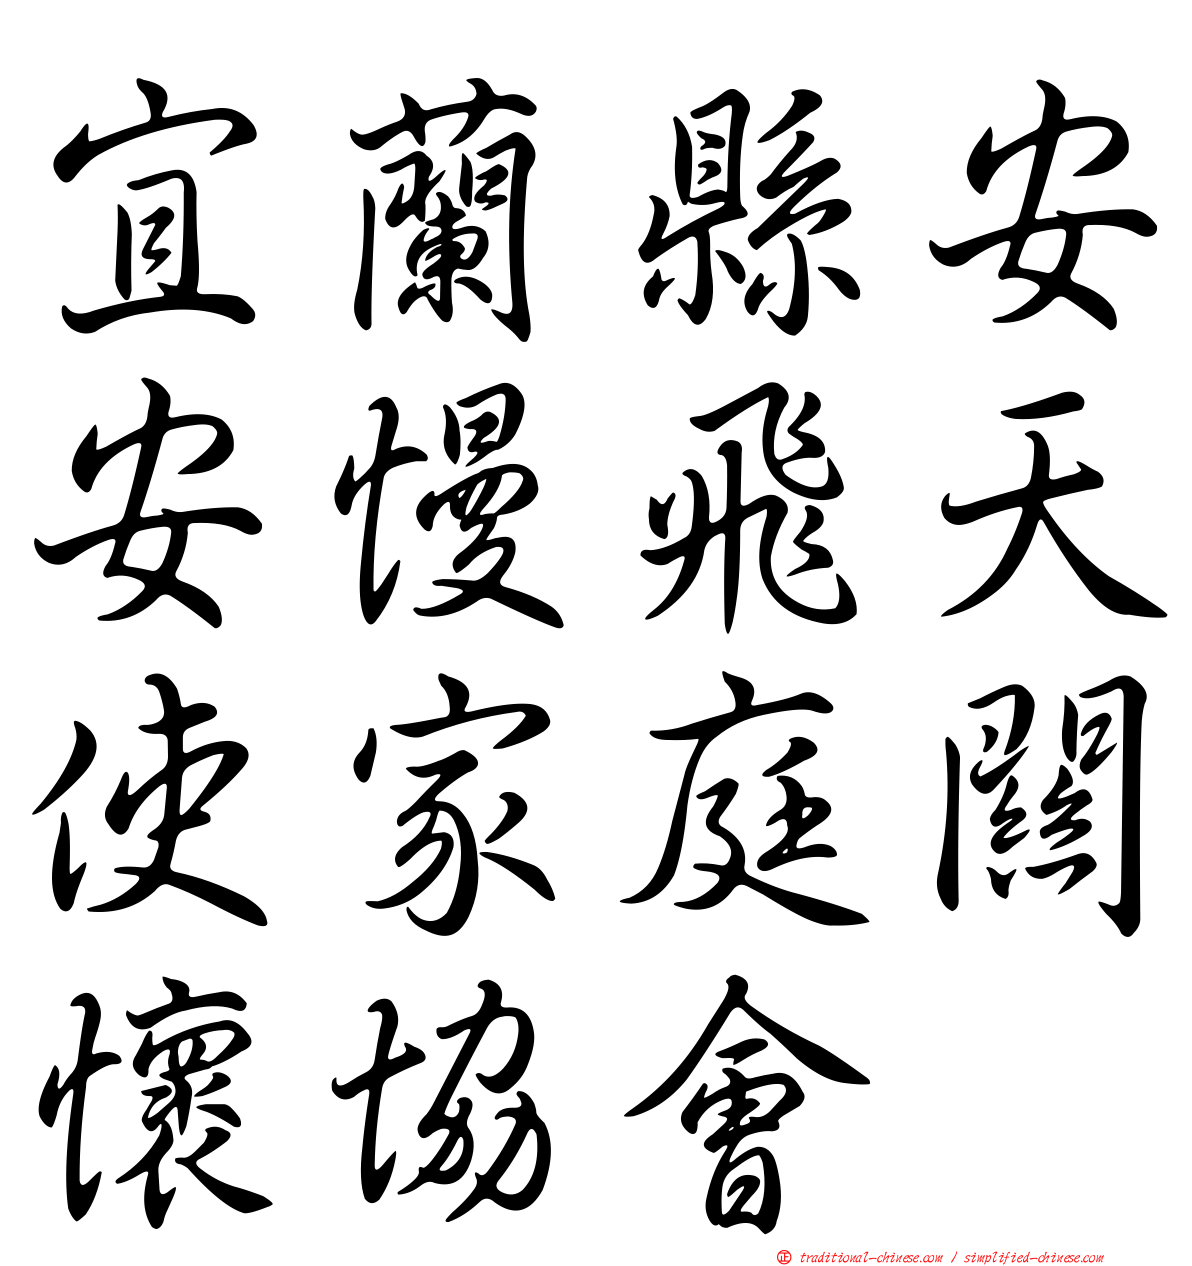 宜蘭縣安
安慢飛天
使家庭關
懷協會
㊣ traditional-chinese.com / simplified-chinese.com